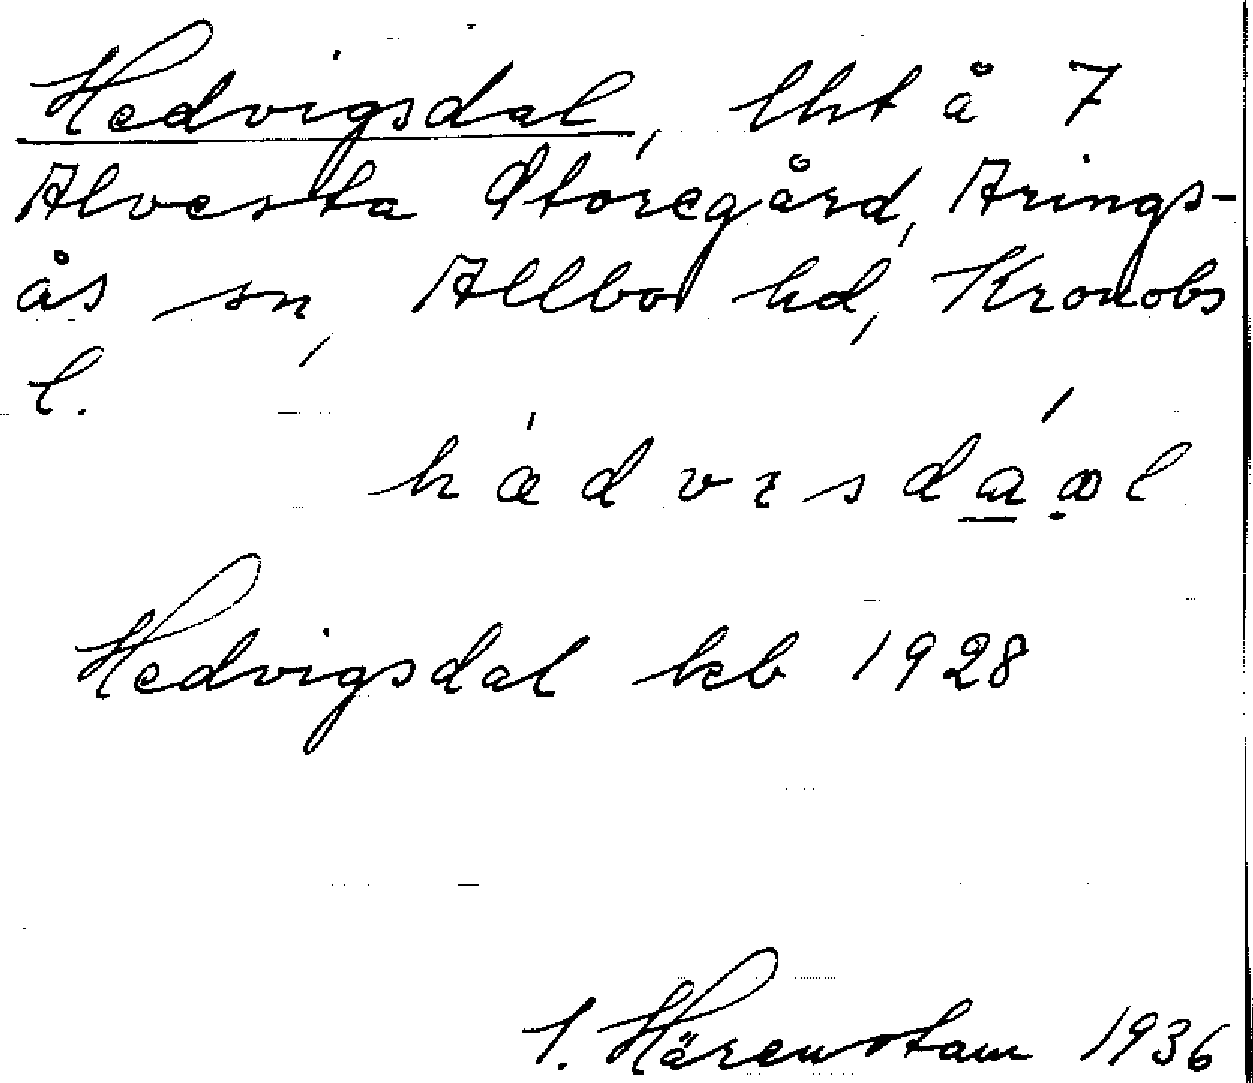 Hedvigsdal, lht å 7
Alvesta Storegård, Arings-
ås sn, Allbo hd, Kronobs
l.
hædvɪsdaal
Hedvigsdal kb 1928
I. Härenstam 1936